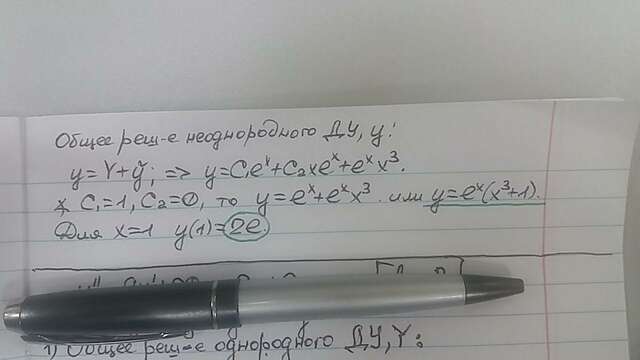 Общее реш-е неоднородного ДУ, y:
y=Y+ỹ; => y=C₁eˣ+C₂xeˣ+eˣx³.
C₁=1, C₂=0, то y=eˣ+eˣx³. или y=eˣ(x³+1).
Для x=1 y(1)=2e
1) Общее реш-е однородного ДУ, Y: